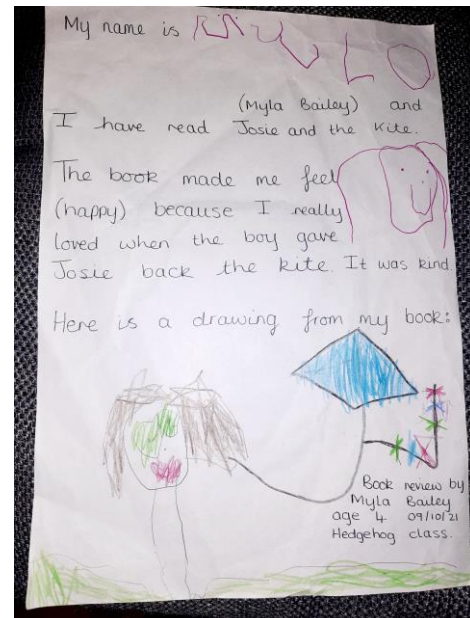 My name is
(Myla Bailey) and
I have read Josie and the Kite.
The book made me feel
(happy) because I really
loved when the boy gave
Josie back the kite. It was kind.
Here is a drawing from my book:
Book review by
Myla Bailey
age 4 09/10/21
Hedgehog class.